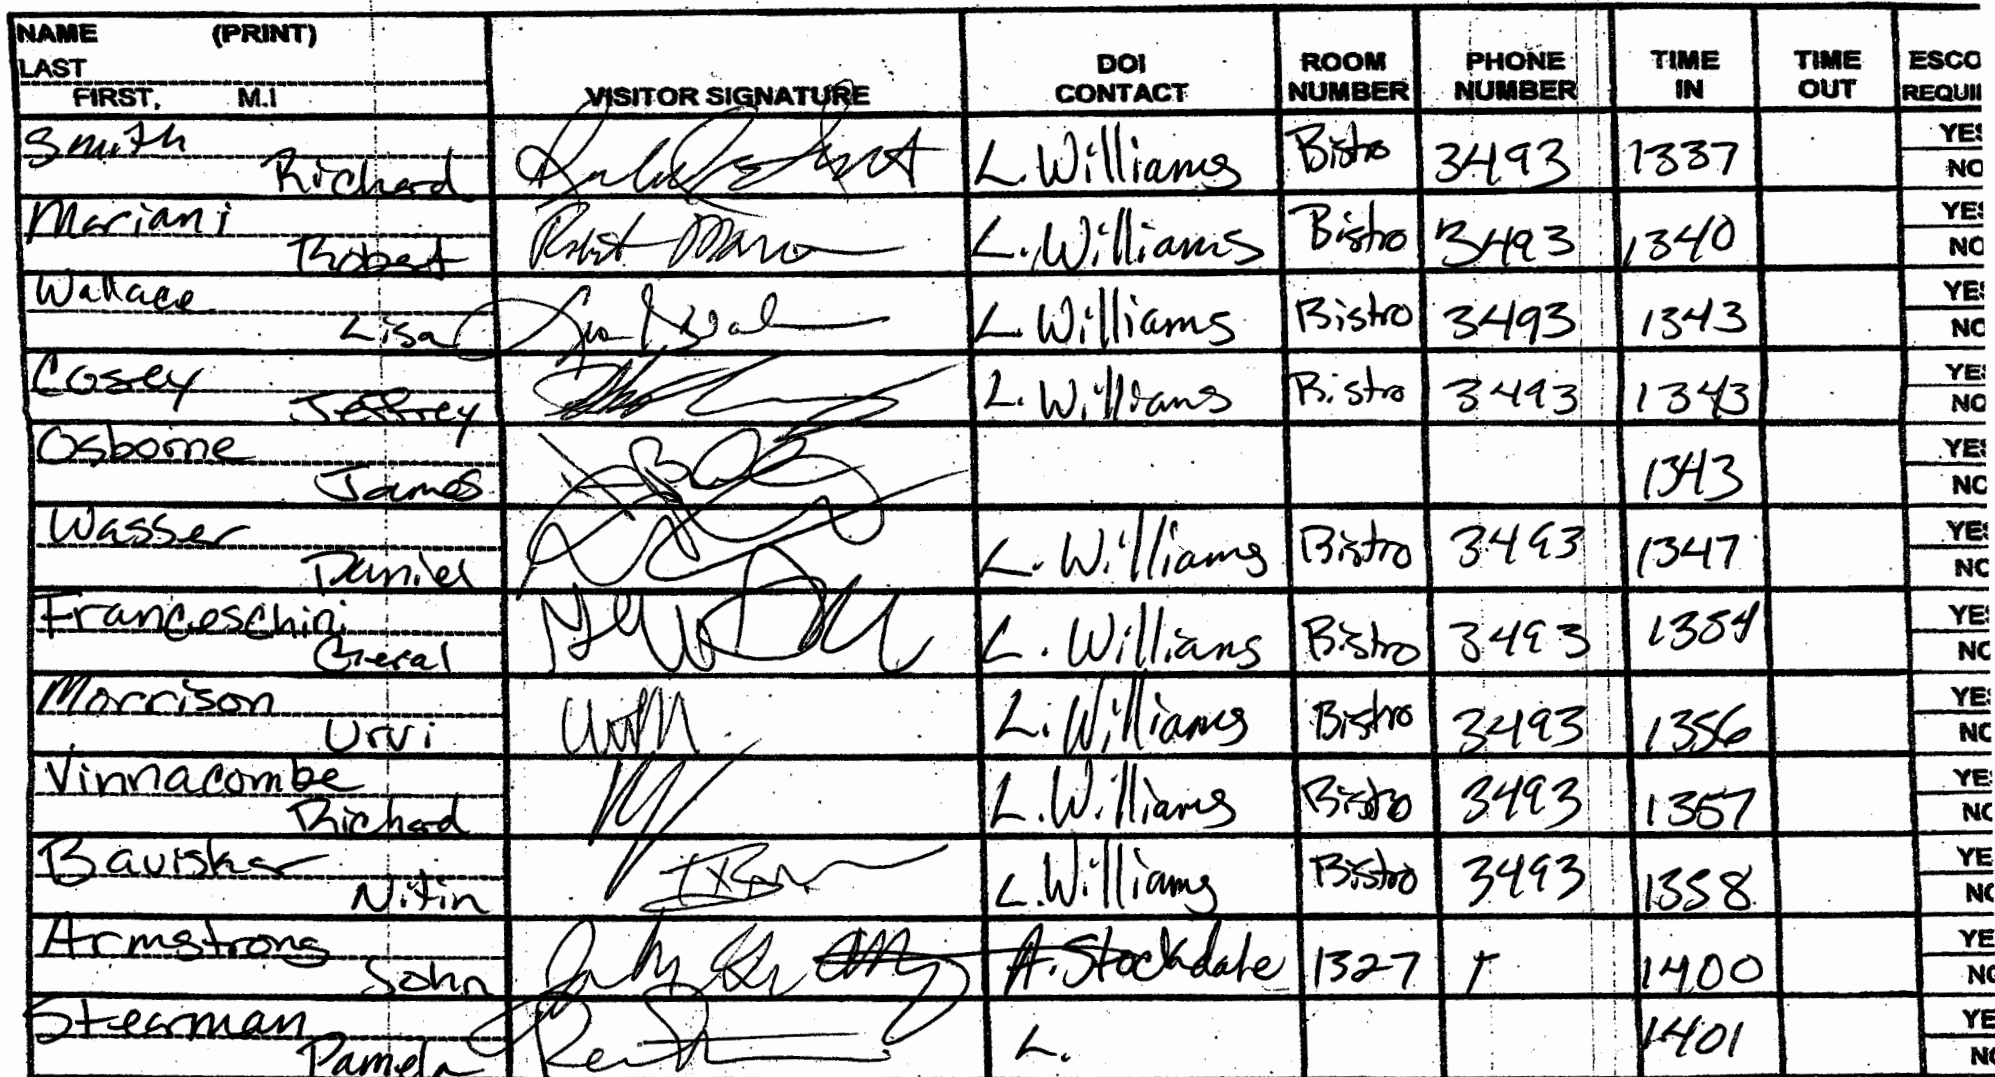 NAME (PRINT)
LAST
FIRST, M.I
VISITOR SIGNATURE
DOI CONTACT
ROOM NUMBER
PHONE NUMBER
TIME IN
TIME OUT
ESCO
REQUI
Smith Richard L. Williams Bistro 3493 1337 YES NO
Mariani Robert L. Williams Bistro 3493 1340 YES NO
Wallace Lisa L. Williams Bistro 3493 1343 YES NO
Cosey Jeffrey L. Williams Bistro 3493 1343 YES NO
Osborne James 1343 YES NO
Wasser Daniel L. Williams Bistro 3493 1347 YES NO
Franceschini Geral L. Williams Bistro 3493 1354 YES NO
Morrison Urvi L. Williams Bistro 3493 1356 YES NO
Vinnacombe Richard L. Williams Bistro 3493 1357 YES NO
Baviskar Nitin L. Williams Bistro 3493 1358 YE NO
Armstrong John A. Stockdale 1327 1400 YE NO
Stearman Pamela L. 1401 YE NO